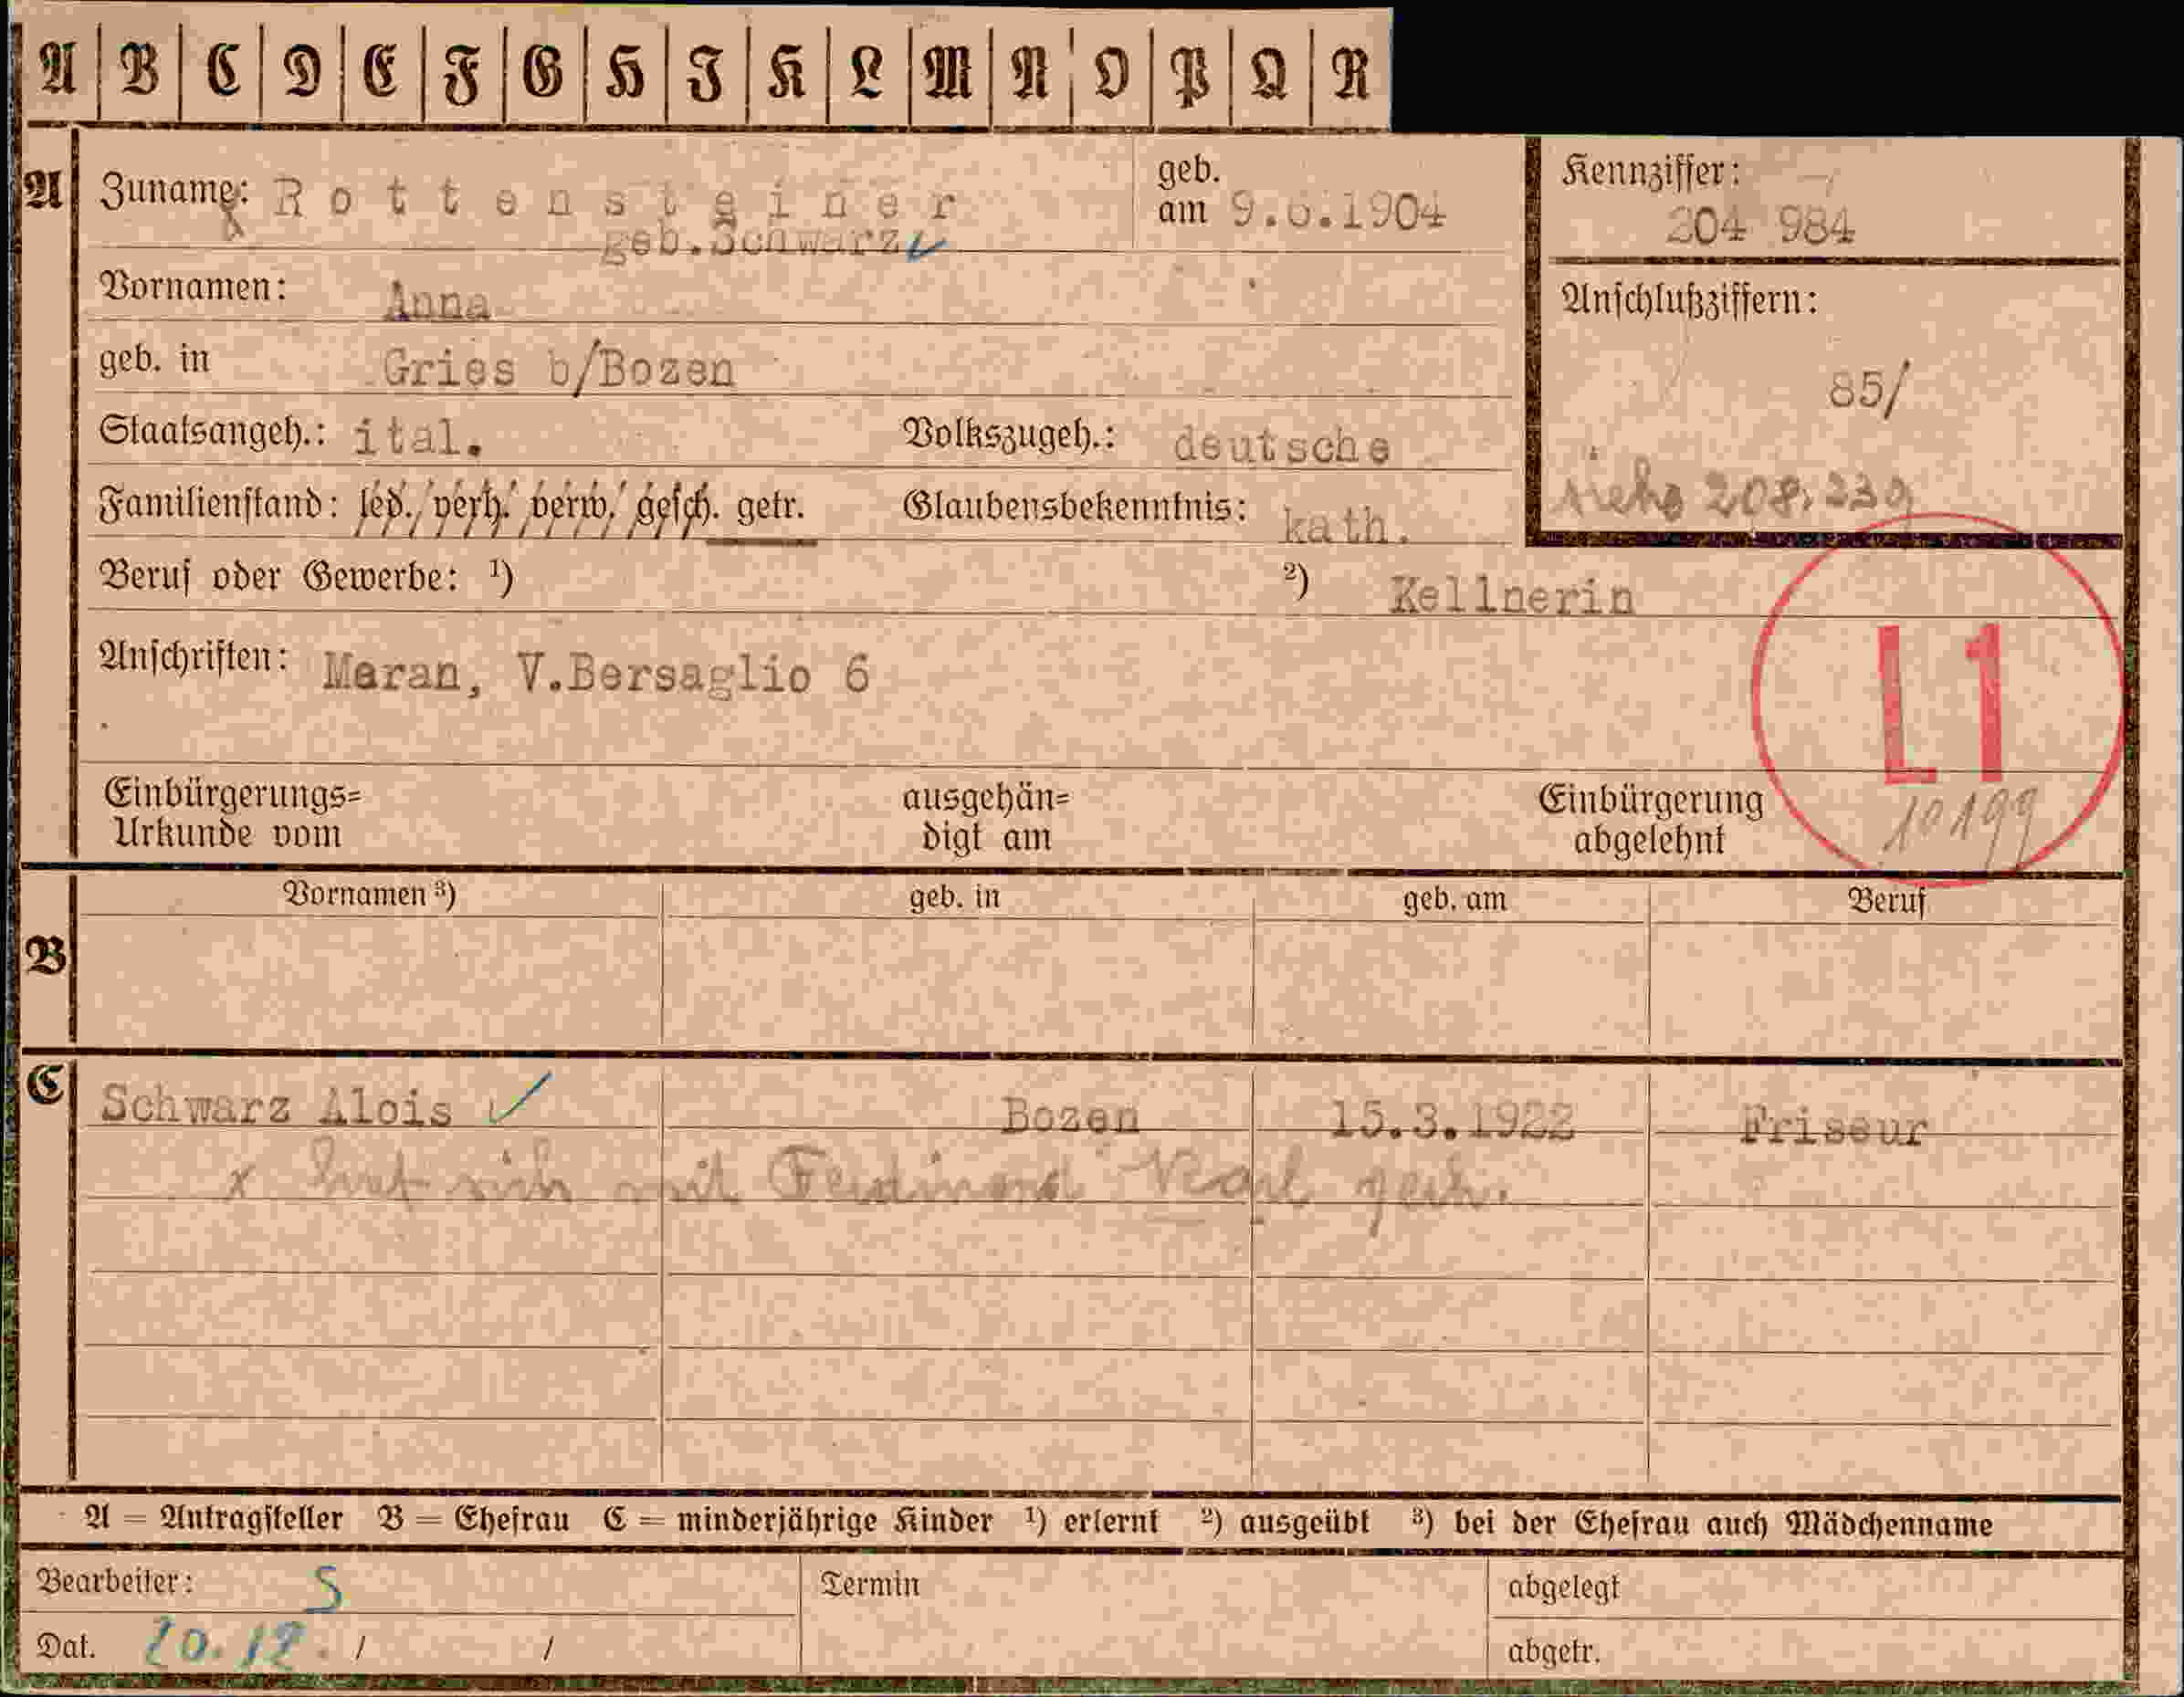 A B C D E F G H I K L M N O P Q R
A Zuname: Rottensteiner geb. am 9.6.1904 Kennziffer: 204 984
geb.Schwarz
Vornamen: Anna Anschlußziffern:
geb. in Gries b/Bozen 85/
Staatsangeh.: ital. Volkszugeh.: deutsche
siehe 208,239
Familienstand: led. verh. verw. gesch. getr. Glaubensbekenntnis: kath.
Beruf oder Gewerbe: ¹) ²) Kellnerin
Anschriften: Meran, V.Bersaglio 6
L1
Einbürgerungs= ausgehän= Einbürgerung
Urkunde vom digt am abgelehnt
10199
Vornamen ³) geb. in geb. am Beruf
B
C Schwarz Alois Bozen 15.3.1922 Friseur
x hat sich mit Ferdinand Karl
A = Antragsteller B = Ehefrau C = minderjährige Kinder ¹) erlernt ²) ausgeübt ³) bei der Ehefrau auch Mädchenname
Bearbeiter: S Termin abgelegt
Dat. 20.12. / / abgetr.